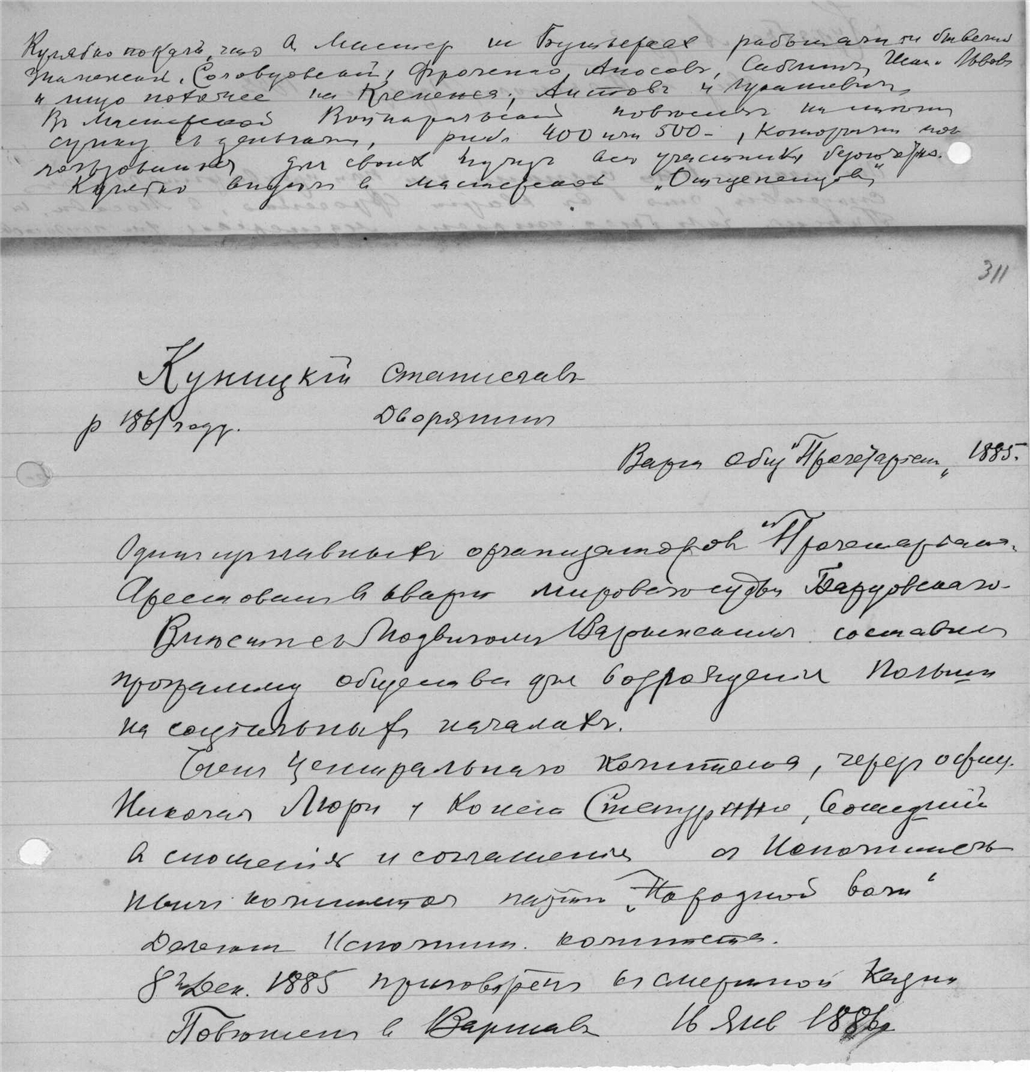 Кулябко показ, что в Мастер
работали
Знаменская, Соловцовский, Фроленко, Аносов, Саблин, Иван Львов
и лицо похожее на Клеменса, Аистов и
В мастерской Войнаральский
сумму с деньгами, рубл 400 или 500 –, которыми
для своих нужд все участники
Кулябко видел в мастерской „Ощепенцов"
311
Куницкій Станислав
р 1861 году. Дворянин
Варш Общ „Пролетариат„ 1885.
Один из главных организаторов „Пролетариата.
Арестован в кварт мирового судьи Бардовского.
Вместе с Людвигом Варынским составил
программу общества для возрождения Польши
на социальных началах.
Член Центрального комитета, через офиц.
Николая Люри и
вошедший
в сношения и соглашения с Исполнитель
ным комитетом партии „Народной воли"
Делегат Исполнит. комитета.
8 Дек. 1885 приговорен к смертной казни
Повешен в Варшаве 16 Янв 1886г